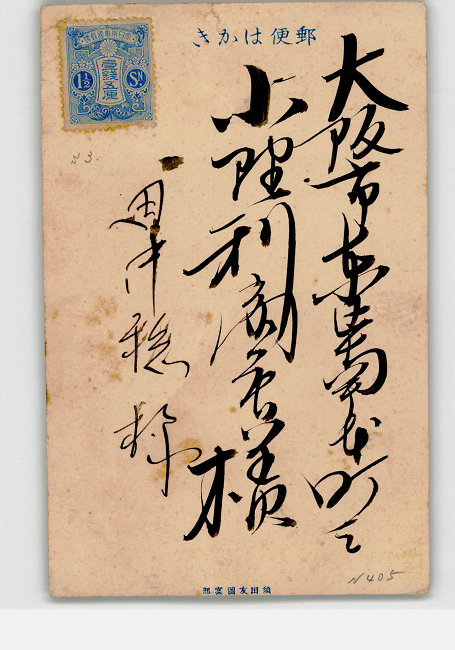 郵便はかき
大日本帝國郵便
壹錢五厘
1½ Sn
大阪市東区南本町二
小野利商店様
田中 様
N405